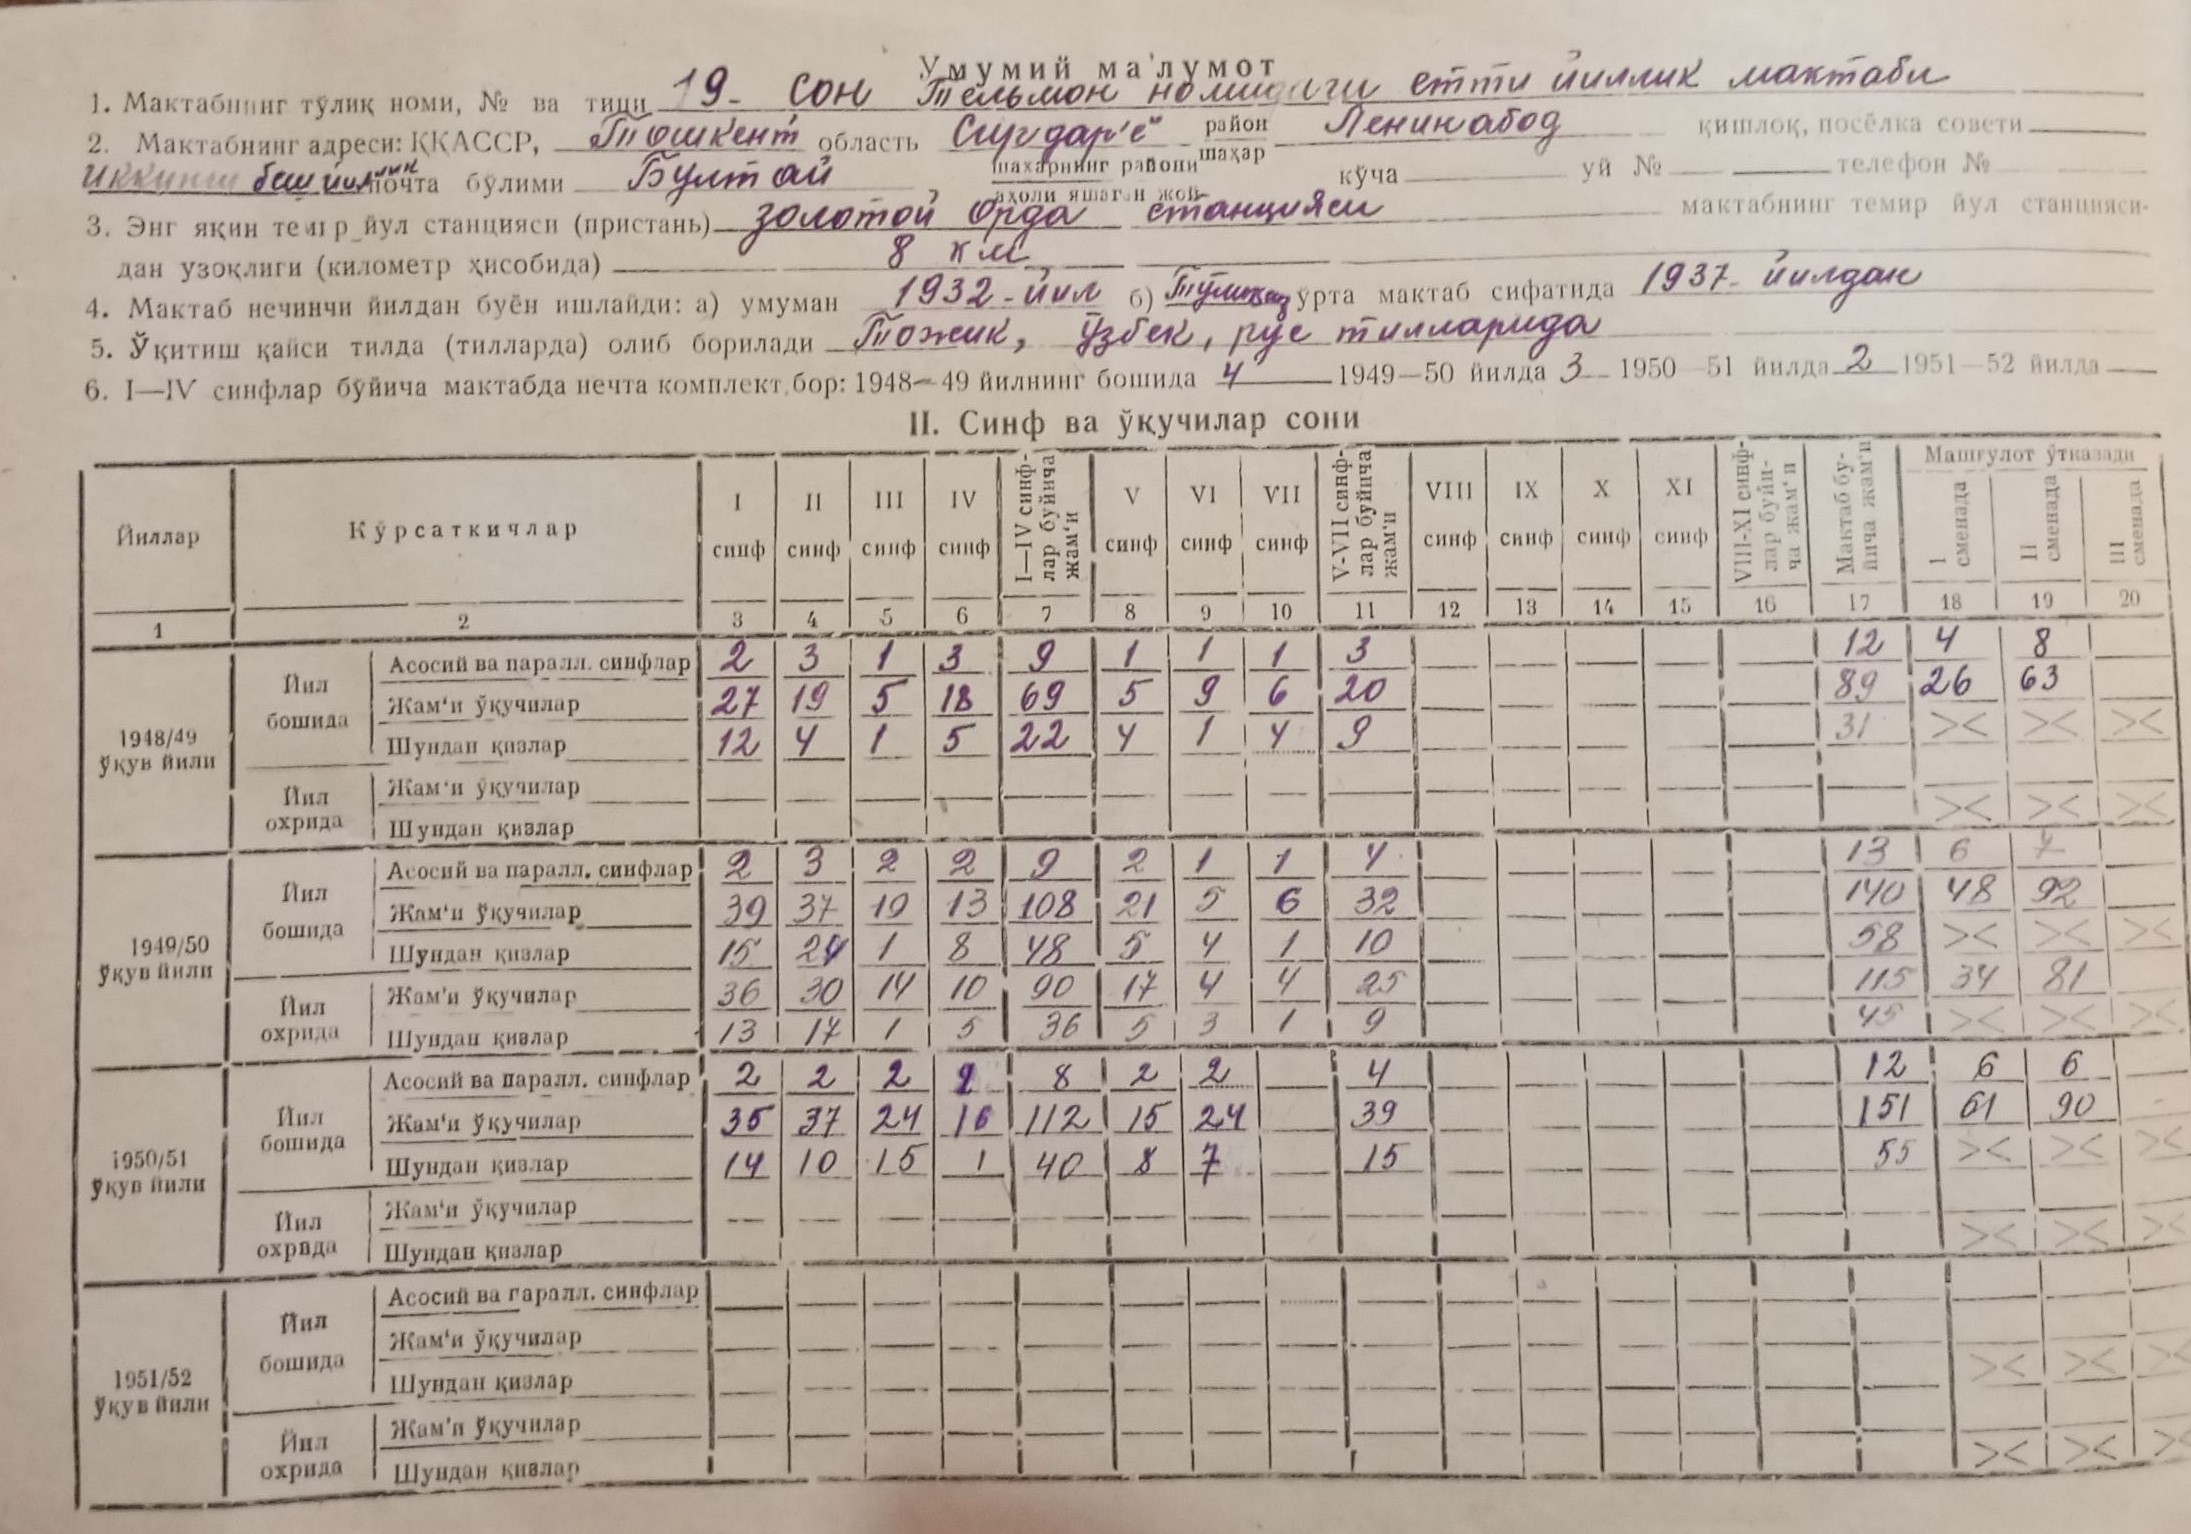 Умумий ма'лумот
1. Мактабнинг тўлиқ номи, № ва типи 19- сон Тельмон номидаги етти йиллик мактаби
2. Мактабнинг адреси: ҚҚАССР, Тошкент область Сирдар'ё район шаҳар Ленинабод қишлоқ, посёлка совети
Иккинчи беш йиллик почта бўлими Бултай шаҳарнинг райони аҳоли яшаган жой кўча уй № телефон №
3. Энг яқин темир йул станцияси (пристань) золотой орда станцияси мактабнинг темир йул станцияси-
дан узоқлиги (километр ҳисобида) 8 км
4. Мактаб нечинчи йилдан буён ишлайди: а) умуман 1932-йил б) ўрта мактаб сифатида 1937- йилдан
5. Ўқитиш қайси тилда (тилларда) олиб борилади Тожик, ўзбек, рус тилларида
6. I—IV синфлар бўйича мактабда нечта комплект бор: 1948—49 йилнинг бошида 4 1949—50 йилда 3 1950—51 йилда 2 1951—52 йилда
II. Синф ва ўқучилар сони
Йиллар Кўрсаткичлар I синф II синф III синф IV синф I—IV синф-лар буйича жам'и V синф VI синф VII синф V-VII синф-лар буйича жам'и VIII синф IX синф X синф XI синф VIII-XI синф-лар буйи-ча жам'и Мактаб бу-йича жам'и Машғулот ўтказади I сменада II сменада III сменада
1 2 3 4 5 6 7 8 9 10 11 12 13 14 15 16 17 18 19 20
1948/49 ўқув йили
Йил бошида
Асосий ва паралл. синфлар 2 3 1 3 9 1 1 1 3 12 4 8
Жам'и ўқучилар 27 19 5 18 69 5 9 6 20 89 26 63
Шундан қизлар 12 4 1 5 22 4 1 4 9 31
Йил охрида
Жам'и ўқучилар
Шундан қизлар
1949/50 ўқув йили
Йил бошида
Асосий ва паралл. синфлар 2 3 2 2 9 2 1 1 4 13 6 7
Жам'и ўқучилар 39 37 19 13 108 21 5 6 32 140 48 92
Шундан қизлар 15 24 1 8 48 5 4 1 10 58
Йил охрида
Жам'и ўқучилар 36 30 14 10 90 17 4 4 25 115 34 81
Шундан қизлар 13 17 1 5 36 5 3 1 9 45
1950/51 ўқув йили
Йил бошида
Асосий ва паралл. синфлар 2 2 2 2 8 2 2 4 12 6 6
Жам'и ўқучилар 35 37 24 16 112 15 24 39 151 61 90
Шундан қизлар 14 10 15 1 40 8 7 15 55
Йил охрида
Жам'и ўқучилар
Шундан қизлар
1951/52 ўқув йили
Йил бошида
Асосий ва паралл. синфлар
Жам'и ўқучилар
Шундан қизлар
Йил охрида
Жам'и ўқучилар
Шундан қизлар